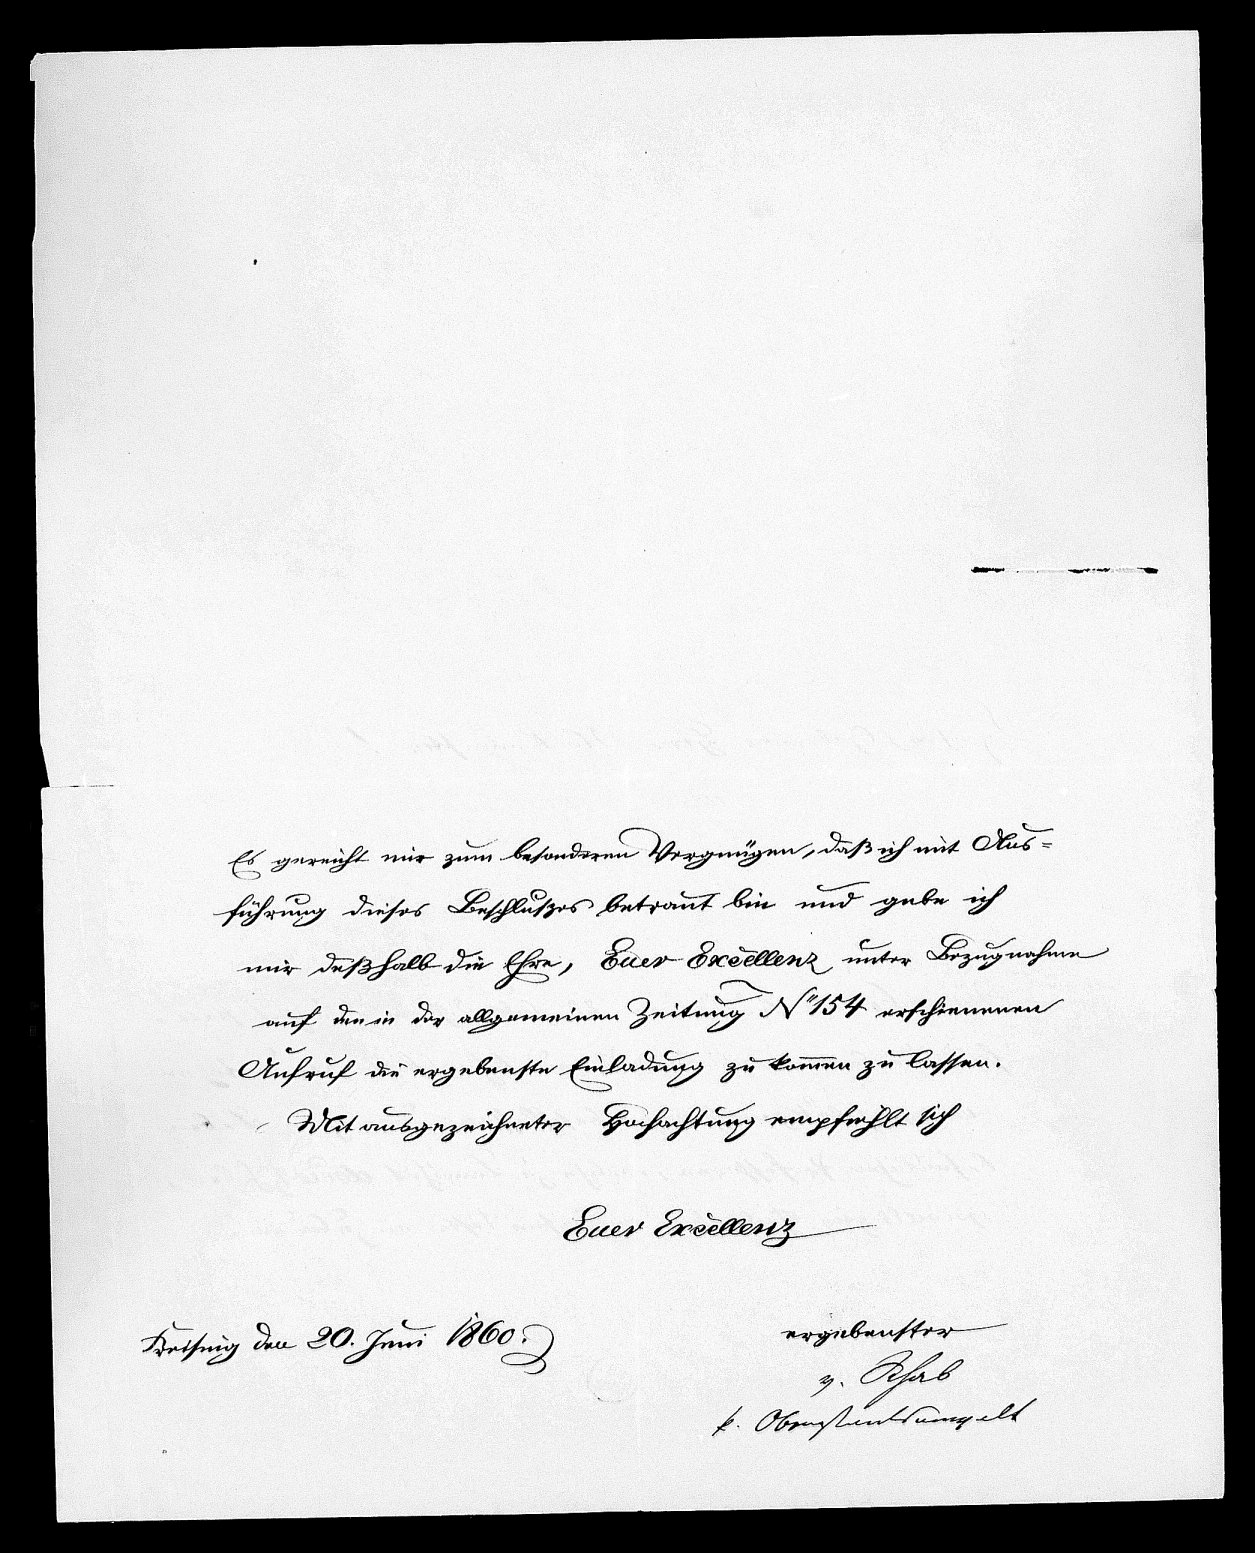 Es gereicht mir zum besonderen Vergnügen, daß ich mit Aus=
führung dieses Beschlußes betraut bin und gebe ich
mir deßhalb die Ehre, Euer Excellenz unter Bezugnahme
auf den in der allgemeinen Zeitung No 154 erschienenen
Aufruf die ergebenste Einladung zu kommen zu lassen.
Mit ausgezeichneter Hochachtung empfiehlt sich
Euer Excellenz
Freising den 20. Juni 1860.
ergebenster
v. Schab
k. Oberstaatsanwalt